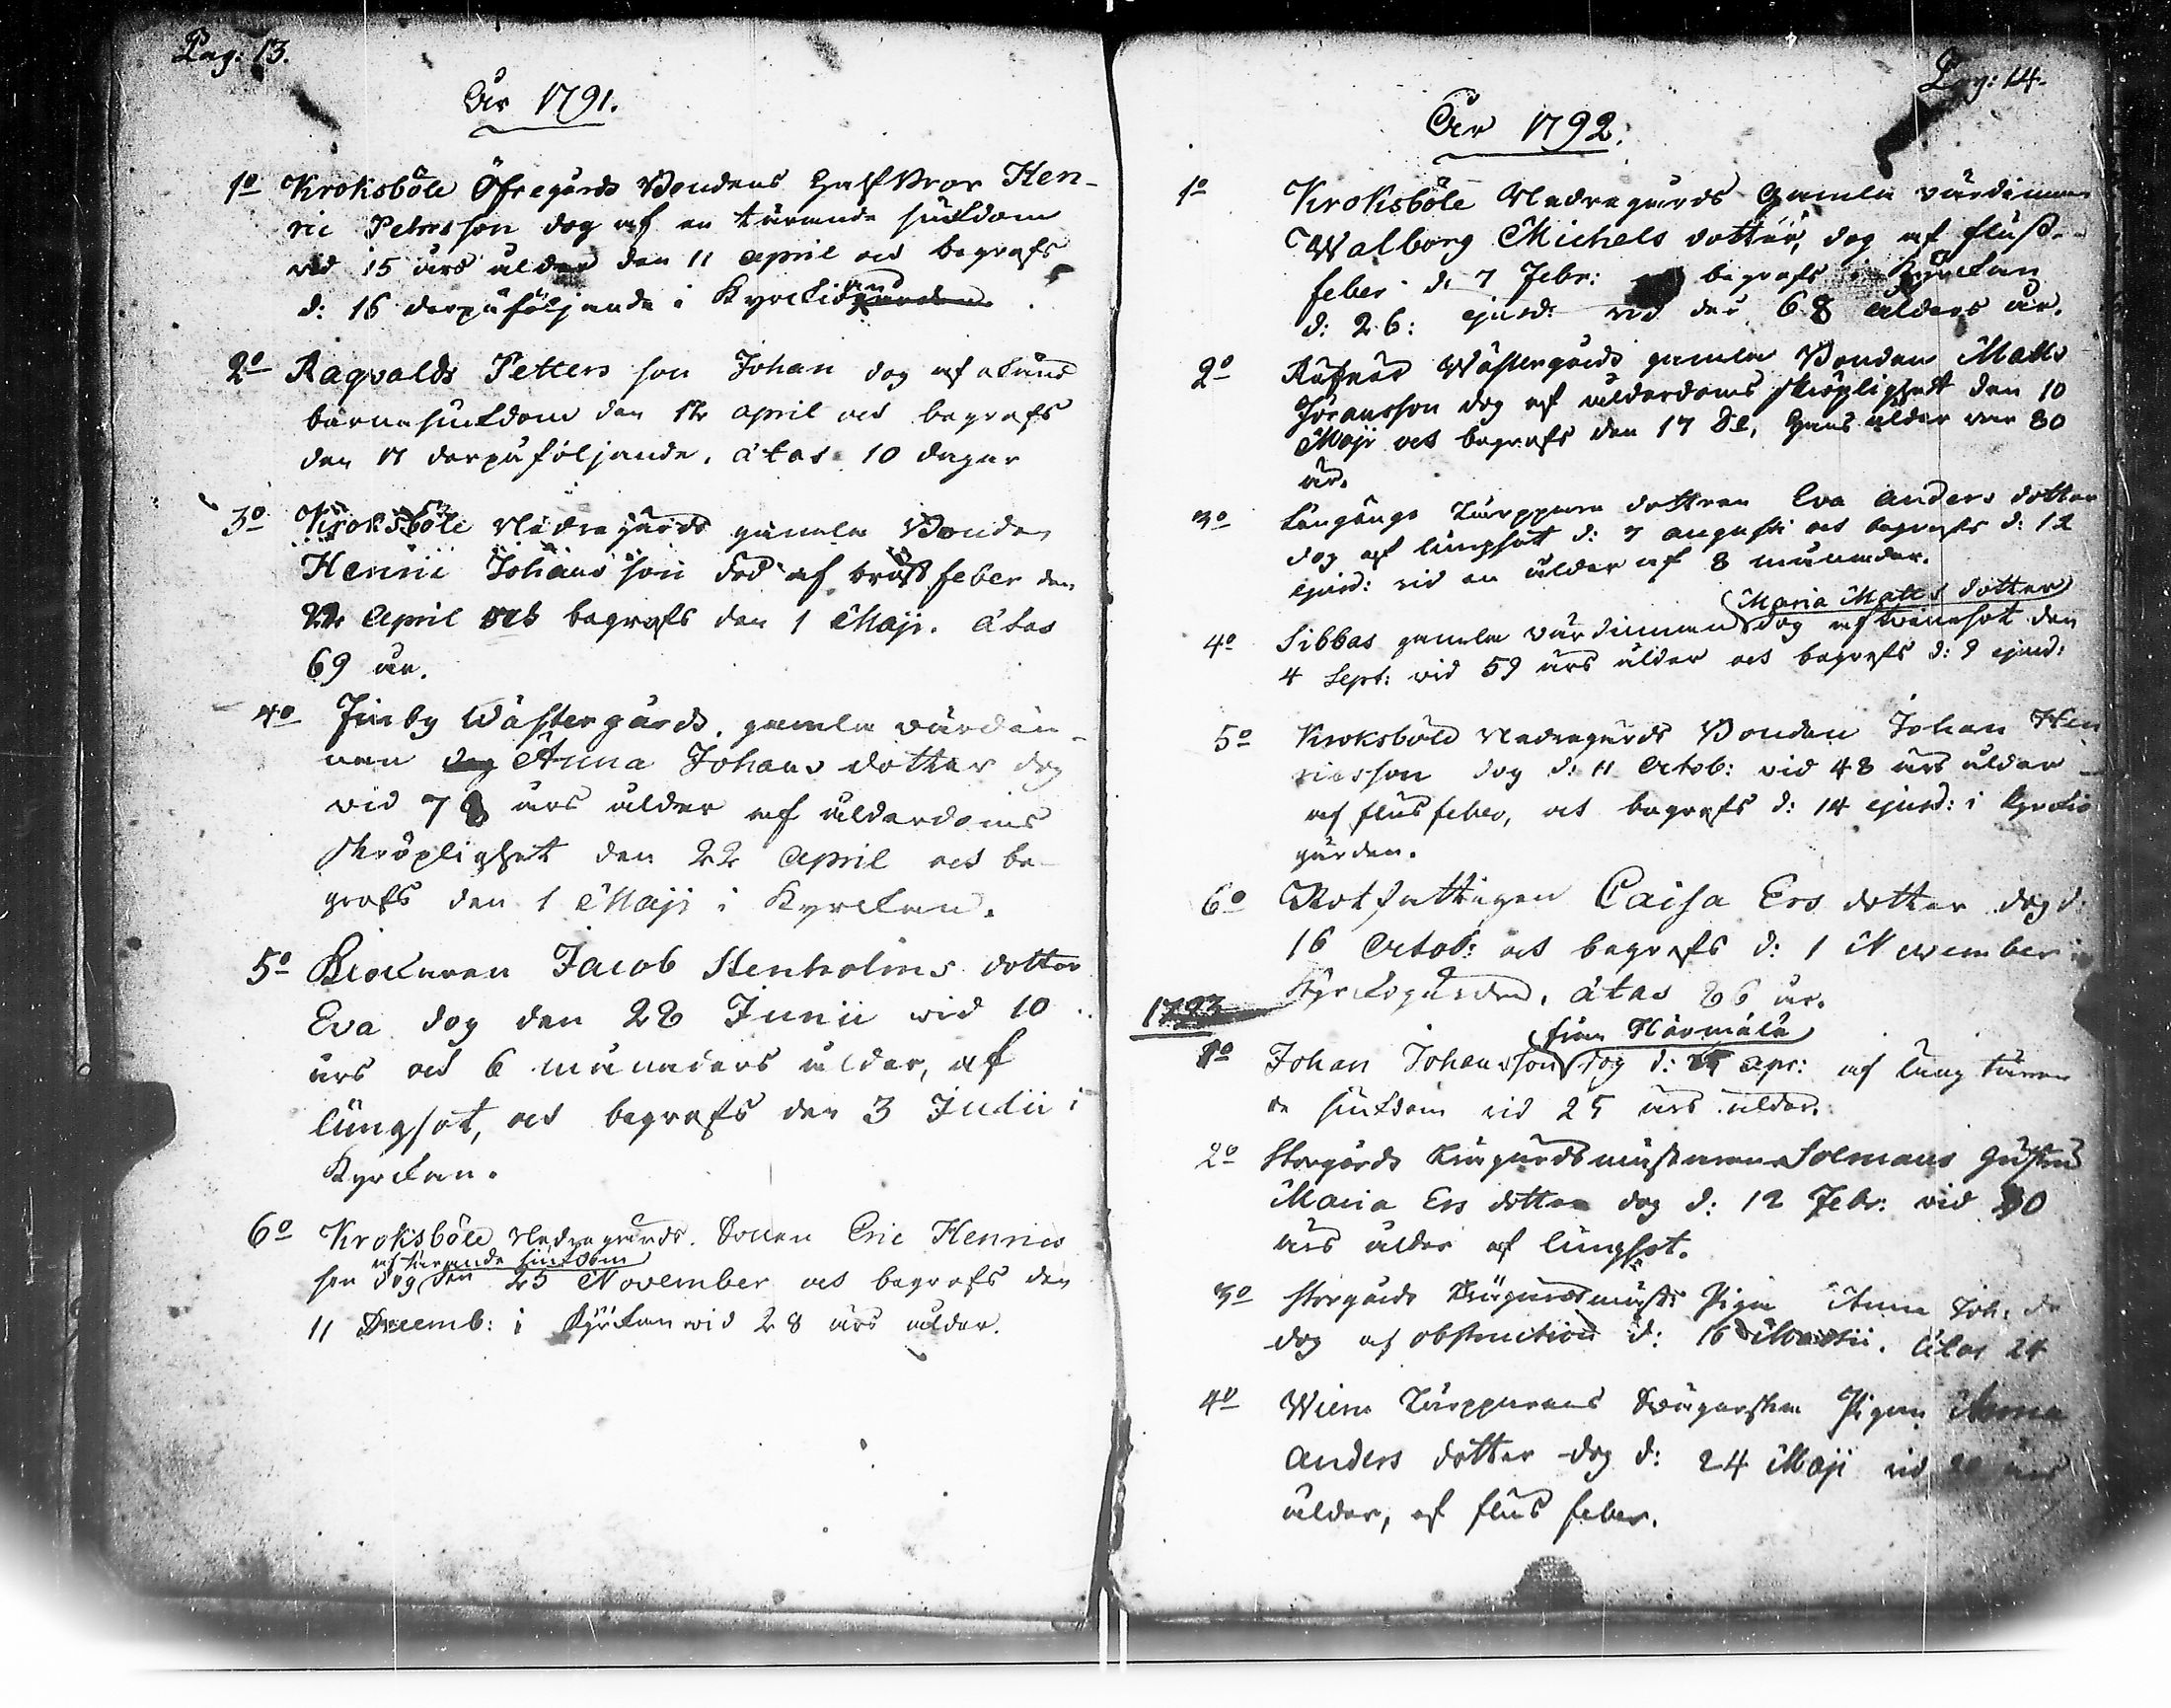 Pag: 13.
År 1791.
1o Kroksböle Öfregårds Bondens Halfbror Hen-
ric Petersson dog af en tärande siukdom
vid 15 års ålder den 11 april och begrofs
d: 16 derpåföljande i Kyrckio
2o Ragvalds Petters son Johan dog af okänd
barnasiukdom den 12 april och begrofs
den 17 derpåföljande. ætas 10 dagar
3o Kroksböle Nedregårds gamla Bonde
Henric Johans son dog af bröst feber den
22 April och begrofs den 1 Maji. ætas
69 år.
4o Finby Wästergårds gamla värdin-
nan Anna Johans dotter dog
vid 78 års ålder af ålderdoms
skröplighet den 22 April och be-
grofs den 1 Maji i Kyrckan.
5o Klockaren Jacob Stenholms dotter
Eva dog den 28 Junii vid 10
års och 6 månaders ålder, af
lungsot, och begrofs den 3 Julii i
Kyrckan.
6o Kroksböle Nedregårds Sonen Eric Henrics
af tärande siukdom
son dog den 25 November och begrofs den
11 Decemb: i Kyrckan vid 28 års ålder.
Pag: 14.
År 1792.
1o Kroksböle Nedregårds Gamla värdinna
Walborg Michels dotter, dog af fluss-
feber d. 7 Febr: begrofs i Kyrckan
d: 26: ejusd: vid des 68 ålders år.
2o Wästergårds gamla Bonden Matts
Jöransson dog af ålderdoms skröplighet den 10
Maji och begrofs den 17 d:o, Hans ålder var 80
år.
3o Långängs Torppare dottren Eva Anders dotter
dog af lungsot d: 7 augusti och begrofs d: 12
ejusd: vid en ålder af 8 månader.
Maria Matts dotter
4o Sibbas gamla värdinnan dog af den
4 Sept: vid 59 års ålder och begrofs d: 9 ejusd:
5o Kroksböle Nedregårds Bonden Johan Hen
ricsson dog d: 11 Octob: vid 48 års ålder
af flussfeber, och begrofs d: 14 ejusd: i Kyrckio
gården.
6o Rotfattigen Caisa Ers dotter dog d:
16 Octob: och begrofs d: 1 November i
Kyrckogården. ætas 86 år.
1793
från Härmälä
1o Johan Johansson dog d: apr: af lång täran
de siukdom vid 25 års ålder.
2o Storgårds Solmans Hustru
Maria Ers dotter dog d: 12 Febr: vid
års ålder af lungsot.
3o Storgårds Piga Anna Joh: d
dog af obstruction d: 16 Martii. ætas 24
4o Wiems Torpparens Svägerskan Pigan Anna
Anders dotter dog d: 24 Maji vid års
ålder, af fluss feber.